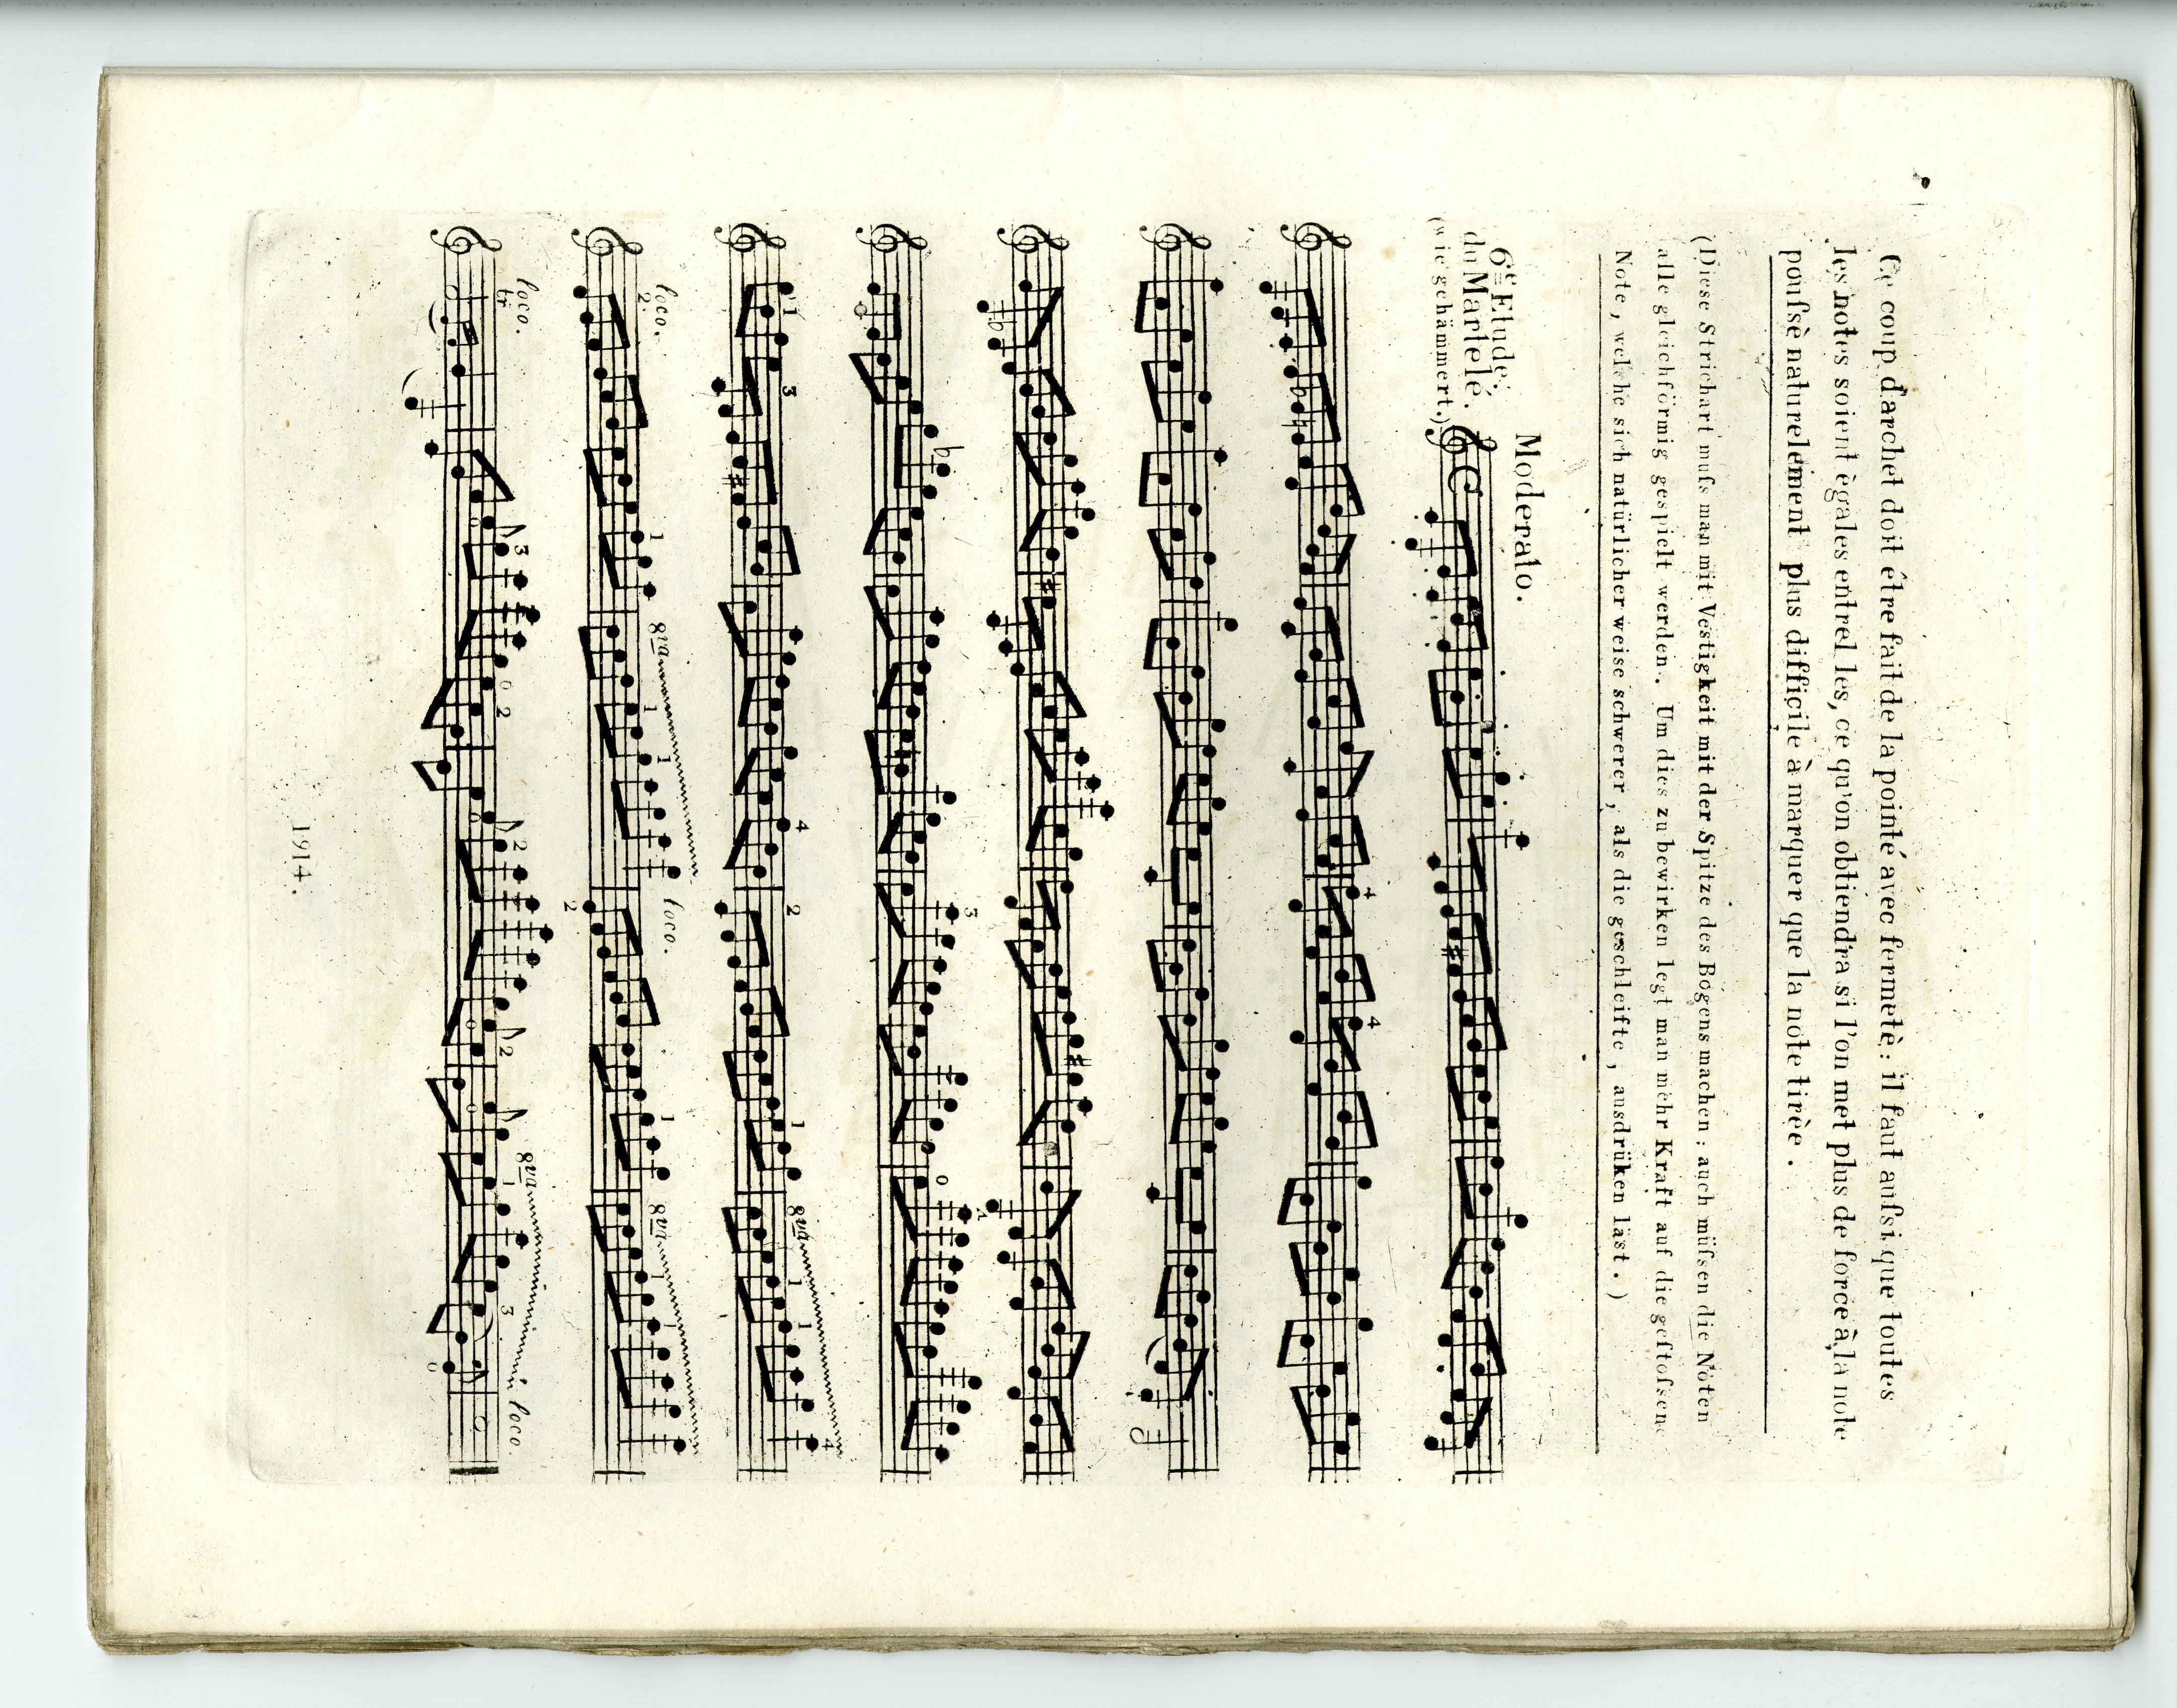 Ce coup d'archet doit être fait de la pointé avec fermetè: il faut aufsi que toutes
les notes soient ègales entrel les, ce qu'on obtiendra si l'on met plus de force à la note
poufsè naturelèment plus difficile à marquer que la note tirèe.
(Diese Strichart mufs man mit Vestigkeit mit der Spitze des Bogens machen: auch müfsen die Noten
alle gleichförmig gespielt werden. Um dies zu bewirken legt man mehr Kraft auf die geftofsene
Note, welche sich natürlicher weise schwerer, als die geschleifte, ausdrüken läst.)
Moderato.
6e Etude.
du Martelé.
(wie gehämmert.)
4 4
3 4
1 3 4 2 1 8va 1 1 4
loco. 2 1 8va 1 1 loco. 2 1 8va 1 1
loco. tr 3 0 2 2 2 8va 1 3 loco.
0
1914.